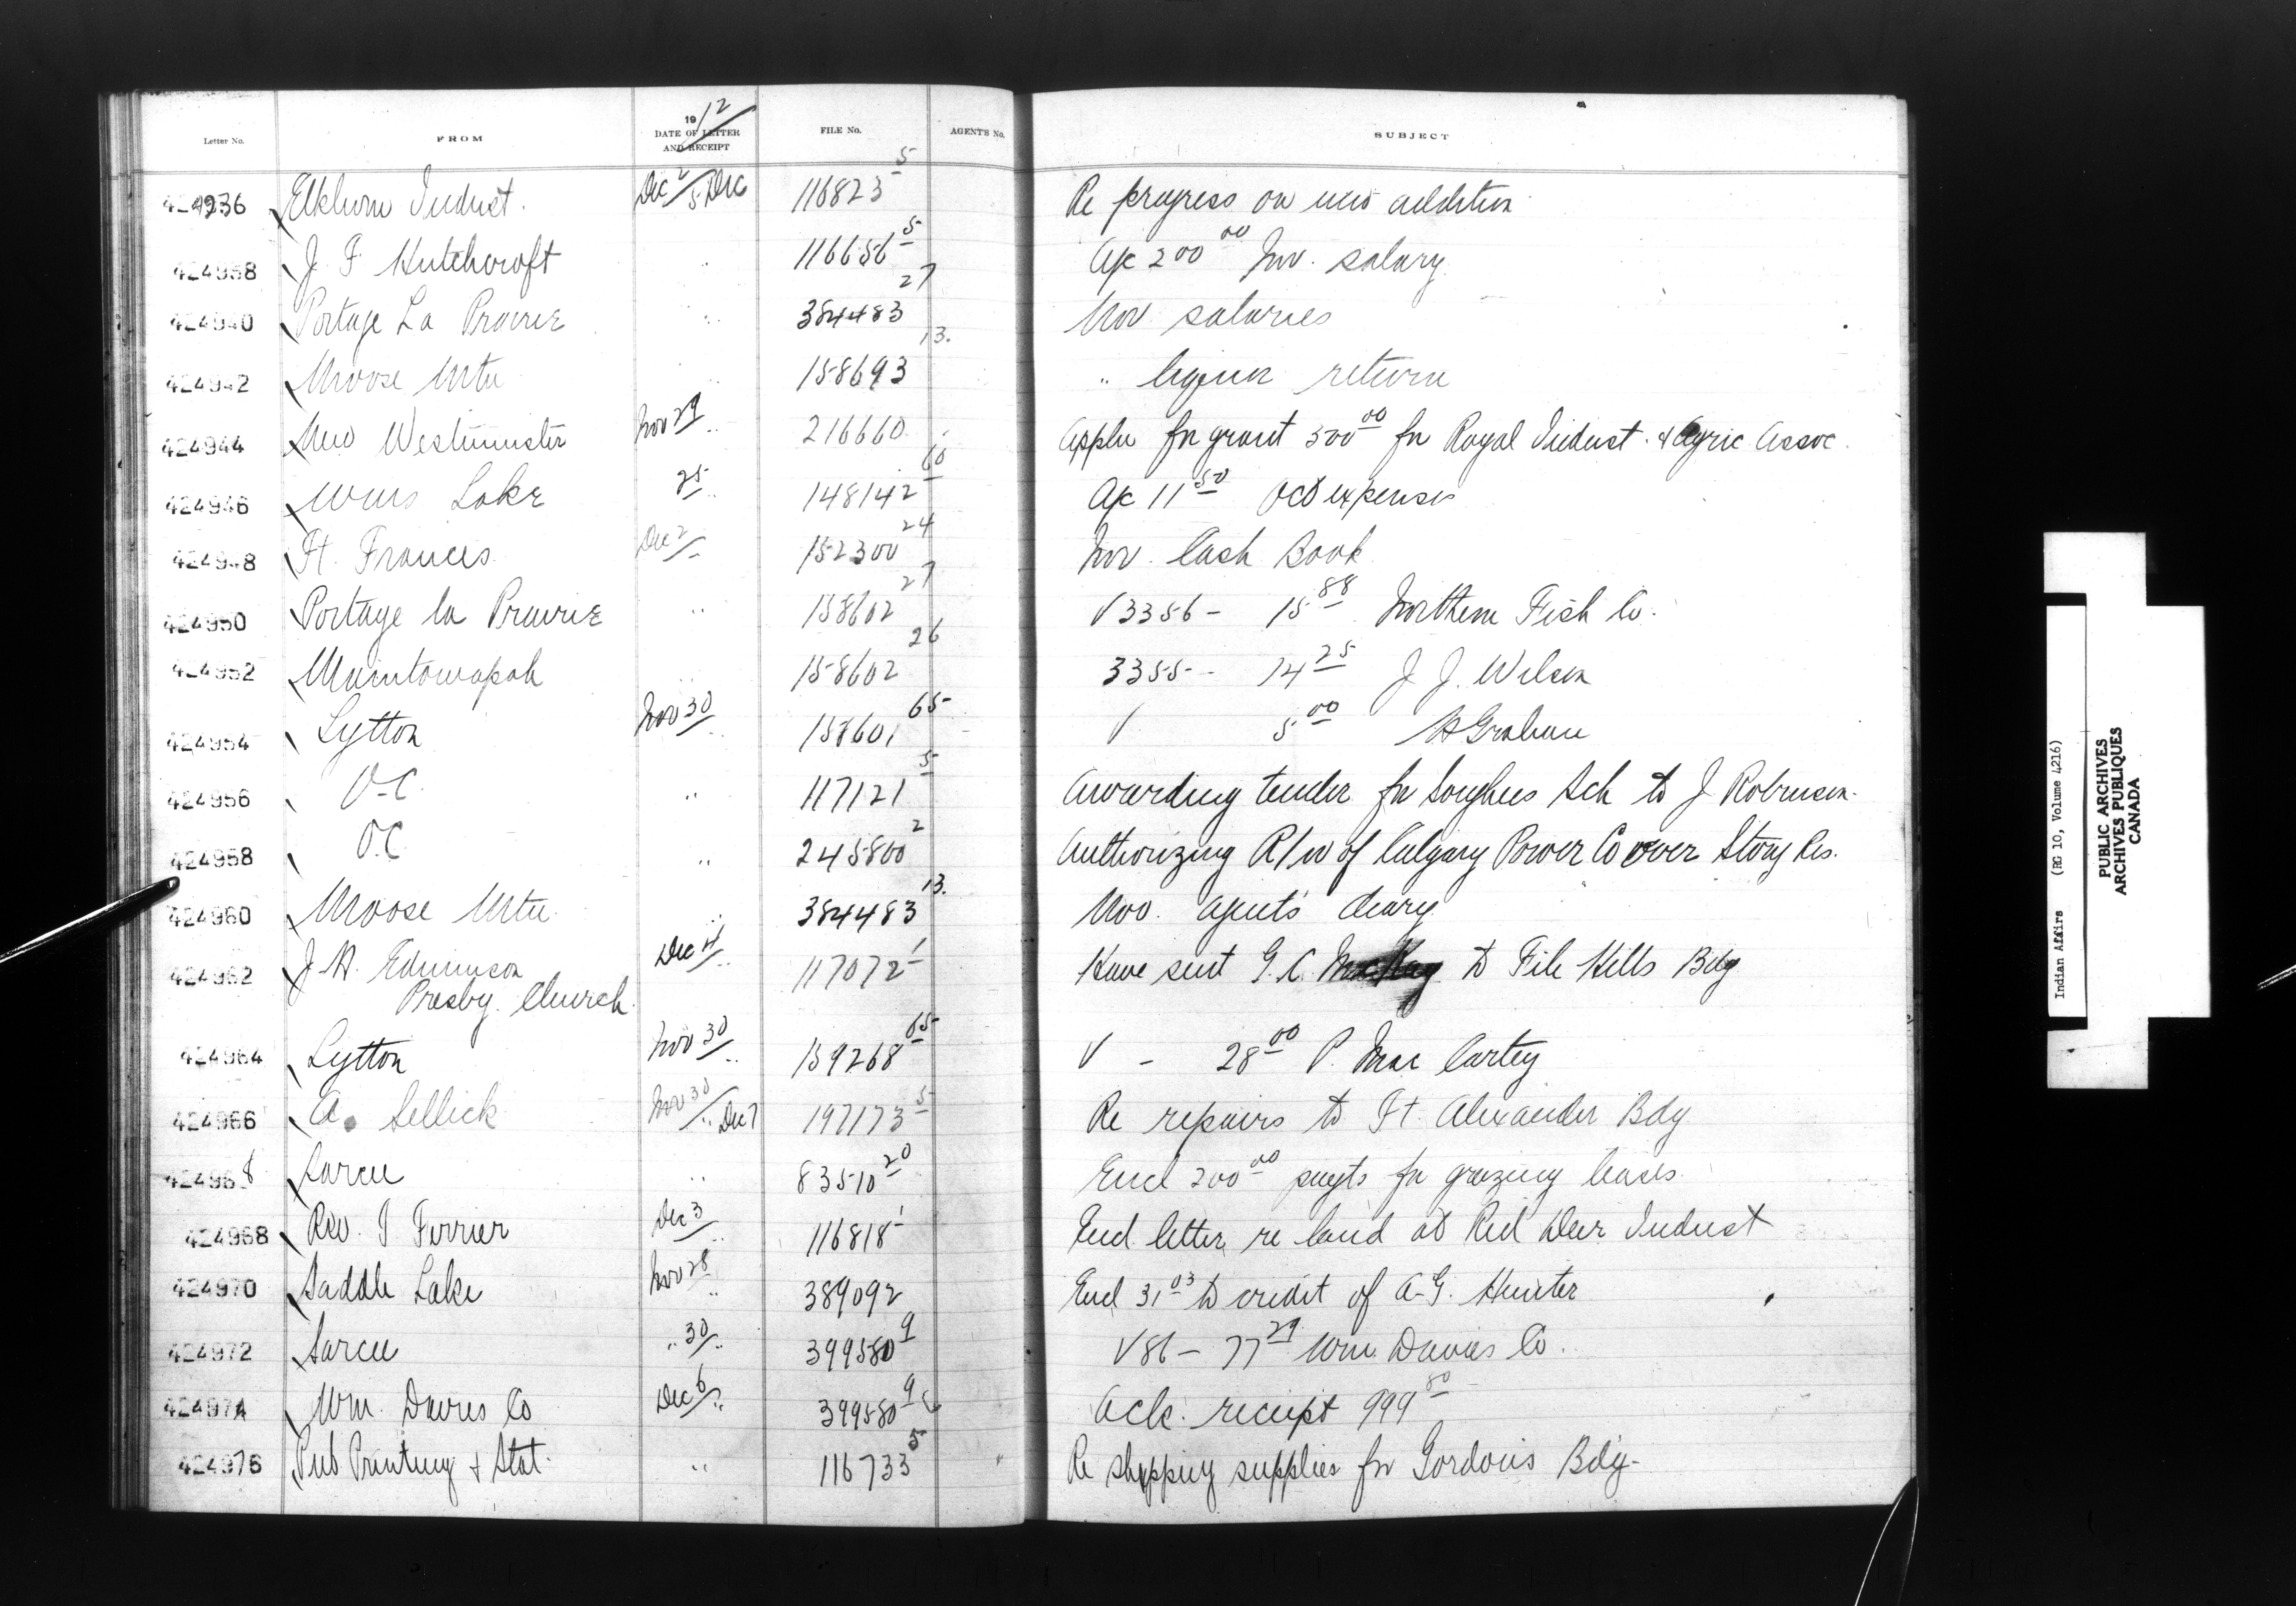 Letter No. FROM 1912 DATE OF LETTER AND RECEIPT FILE No. AGENT'S No. SUBJECT
424936 Elkhorn Indust. Dec 2/5 Dec 116823 5 Re progress on new addition
424938 J F Hutchcroft " 116656 5 a/c 200 00 Nov. salary
424940 Portage La Prairie " 384483 27 Nov salaries
424942 Moose Mtn " 158693 13. " liquor return
424944 New Westminster Nov 29/" 216660 Appln for grant 500 00 for Royal Indust. & Agric Assoc.
424946 Wms Lake 25/" 148142 60 a/c 11 50 Oct expenses
424948 Ft. Frances Dec 2/" 152300 24 Nov. Cash Book
424950 Portage la Prairie " 158602 27 V 3356 - 15 88 Northern Fish Co.
424952 Manitowapah " 158602 26 3355 - 14 25 J J. Wilson
424954 Lytton Nov 30/" 158601 65 V 5 00 H Graham
424956 O-C. " 117121 5 Awarding tender for Songhees Sch to J Robinson
424958 O.C. " 245800 2 Authorizing R/W of Calgary Power Co over Stony Res.
424960 Moose Mtn " 384483 13. Nov. agent's diary
424962 J. H. Edmison Dec 4/" 117072 1 Have sent G. C. MacKay to File Hills Bdg
Presby. Church
424964 Lytton Nov 30/" 159268 65 V - 28 00 P. Mac Cartey
424966 A. Sellick Nov 30/" Dec 7 197173 5 Re repairs to Ft. Alexander Bdg
424968 Sarcee " 83510 20 Encl 200 00 paymts for grazing leases
424968 Rev. T Ferrier Dec 3/" 116818 1 Encl. letter re land at Red Deer Indust
424970 Saddle Lake Nov 28/" 389092 Encl 31 03 to credit of A-G. Hunter
424972 Sarcee " 30/" 399580 9 V 86 - 77 29 Wm. Davies Co.
424974 Wm. Davies Co Dec 6/" 399580 9 Ack. receipt 999 80
424976 Pub Printing & Stat. " 116733 5 Re shipping supplies for Gordons Bdg.
Indian Affairs (RG 10, Volume 4216)
PUBLIC ARCHIVES
ARCHIVES PUBLIQUES
CANADA